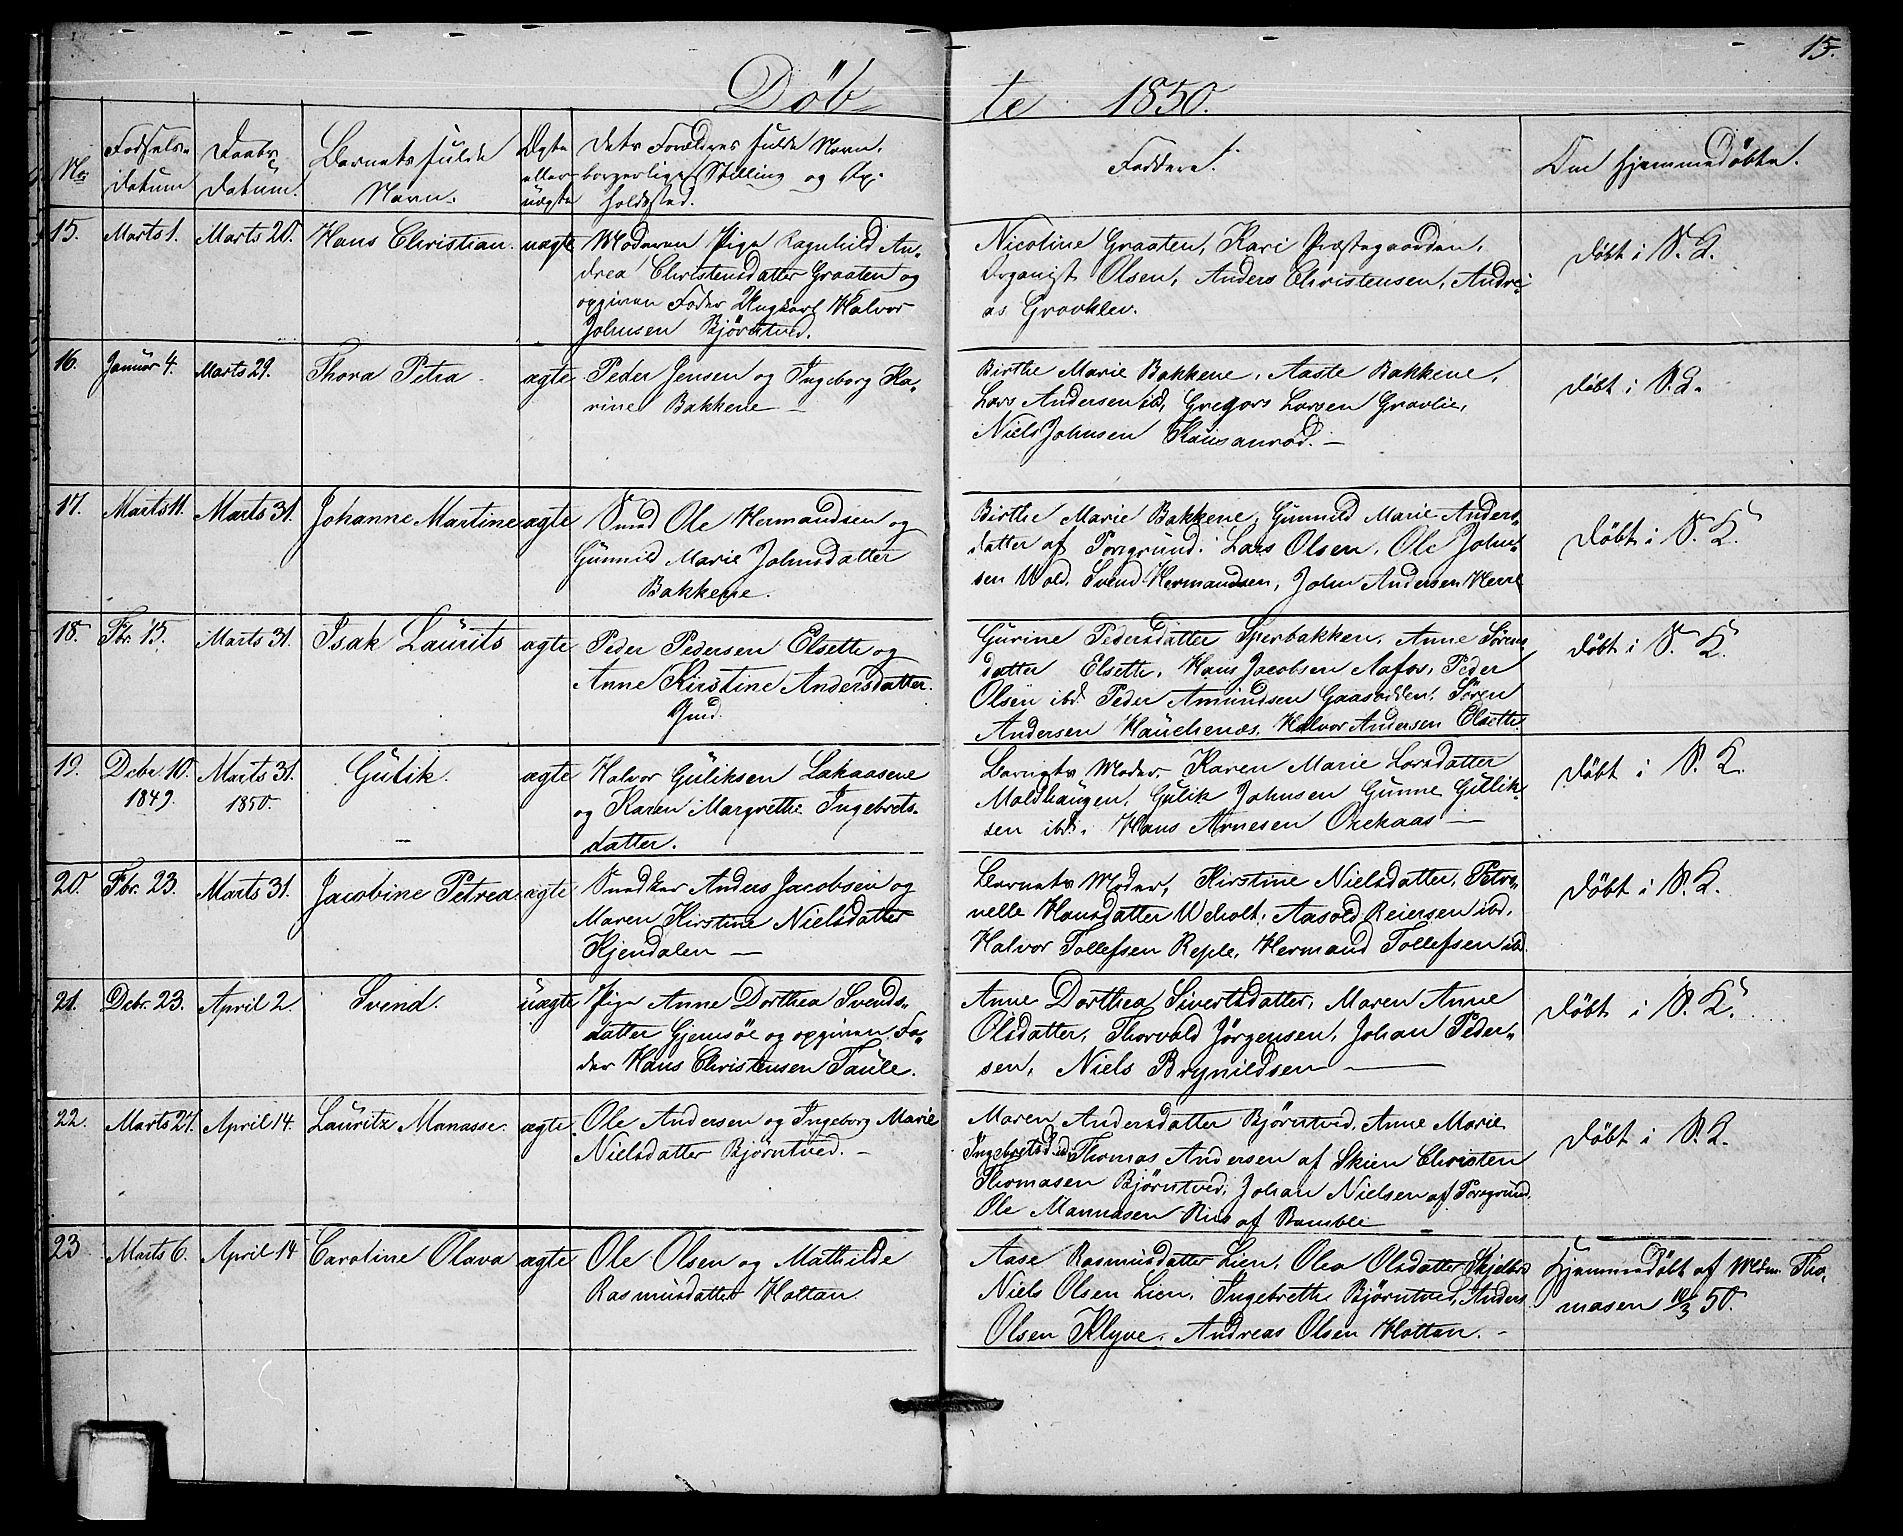 15.
Döbte 1850.
No
Fødselsdatum
Daabsdatum.
Barnets fulde Navn.
Ægte eller uægte
Dets Forældres fulde Navn, borgerlige Stilling og Opholdssted.
Faddere.
Om hjemmedøbte.
15. Marts 1. Marts 20. Hans Christian. uægte
Moderen Pige Ragnhild An-
drea Christensdatter Graaten og
opgiven Fader Ungkarl Halvor
Johnsen Bjørntved.
Nicoline Graaten, Kari Præstegaarden,
Organist Olsen, Anders Christensen, Andre-
as Gravklev.
døbt i S. K.
16. Januar 4. Marts 29. Thora Petra. ægte
Peder Jensen og Ingeborg Ka-
rine Bakkene —
Birthe Marie Bakkene, Aaste Bakkene,
Lars Andersen ibd, Gregors Larsen Gravlie,
Niels Johnsen Kausanrød. —
døbt i S. K.
17. Marts 11. Marts 31. Johanne Martine ægte
Smed Ole Hermandsen og
Gunnild Marie Johnsdatter
Bakkene.
Birthe Marie Bakkene, Gunnild Marie Anders-
datter af Porsgrund. Lars Olsen, Ole John-
sen Wold, Svend Hermandsen, John Andersen Herre
døbt i S. K.
18. Fbr. 15. Marts 31. Isak Laurits ægte
Peder Pedersen Elsette og
Anne Kirstine Andersdatter.
Gurine Pedersdatter Sperbakken, Anne Sørens-
datter Elsette, Hans Jacobsen Aafos, Peder
Olsen ibd Peder Amundsen Gaasodden, Søren
Andersen Hauchenæs, Halvor Andersen Elsette.
døbt i S. K.
19. Debr. 10. Marts 31. Gulik. ægte
1849. 1850.
Halvor Guliksen Lakaasene
og Karen Margrethe Ingebrets-
datter.
Barnets Moder, Karen Marie Larsdatter
Moldhaugen, Gulik Johnsen Gunne, Gullik-
sen ibd, Hans Arnesen Orekaas —
døbt i S. K.
20. Fbr. 23. Marts 31. Jacobine Petrea. ægte
Snedker Anders Jacobsen og
Maren Kirstine Nielsdatter
Kjendalen —
Barnets Moder, Kirstine Nielsdatter, Petro-
nelle Hansdatter Weholt, Aasold Reiersen ibd,
Halvor Tollefsen Reple, Hermand Tollefsen ibd.
døbt i S. K.
21. Debr. 23. April 2. Svend. uægte
Pige Anne Dorthea Svends-
datter Gjemsöe og opgiven Fa-
der Hans Christensen Taule.
Anne Dorthea Sivertsdatter, Maren Anne
Olsdatter, Thorvald Jørgensen, Johan Peder-
sen, Niels Brynildsen —
døbt i S. K.
22. Marts 21. April 14. Lauritz Manasse. ægte
Ole Andersen og Ingeborg Marie
Nielsdatter Bjørntved. —
Maren Andersdatter Bjørntved, Anne Marie
Ingebretsd. ibd. Thomas Andersen af Skien Christen
Thomasen Bjørntved, Johan Nielsen af Porsgrund.
Ole Mannasen Riis af Bamble
døbt i S. K.
23 Marts 6. April 14 Caroline Olava ægte
Ole Olsen og Mathilde
Rasmusdatter Hottan.
Aase Rasmusdatter Lien, Olea Olsdatter Skjelbre
Niels Olsen Lien, Ingebreth Bjørntved, Anders
Olsen Klyve, Andreas Olsen Hottan. —
Hjemmedøbt af Tho-
masen 10/3 50.